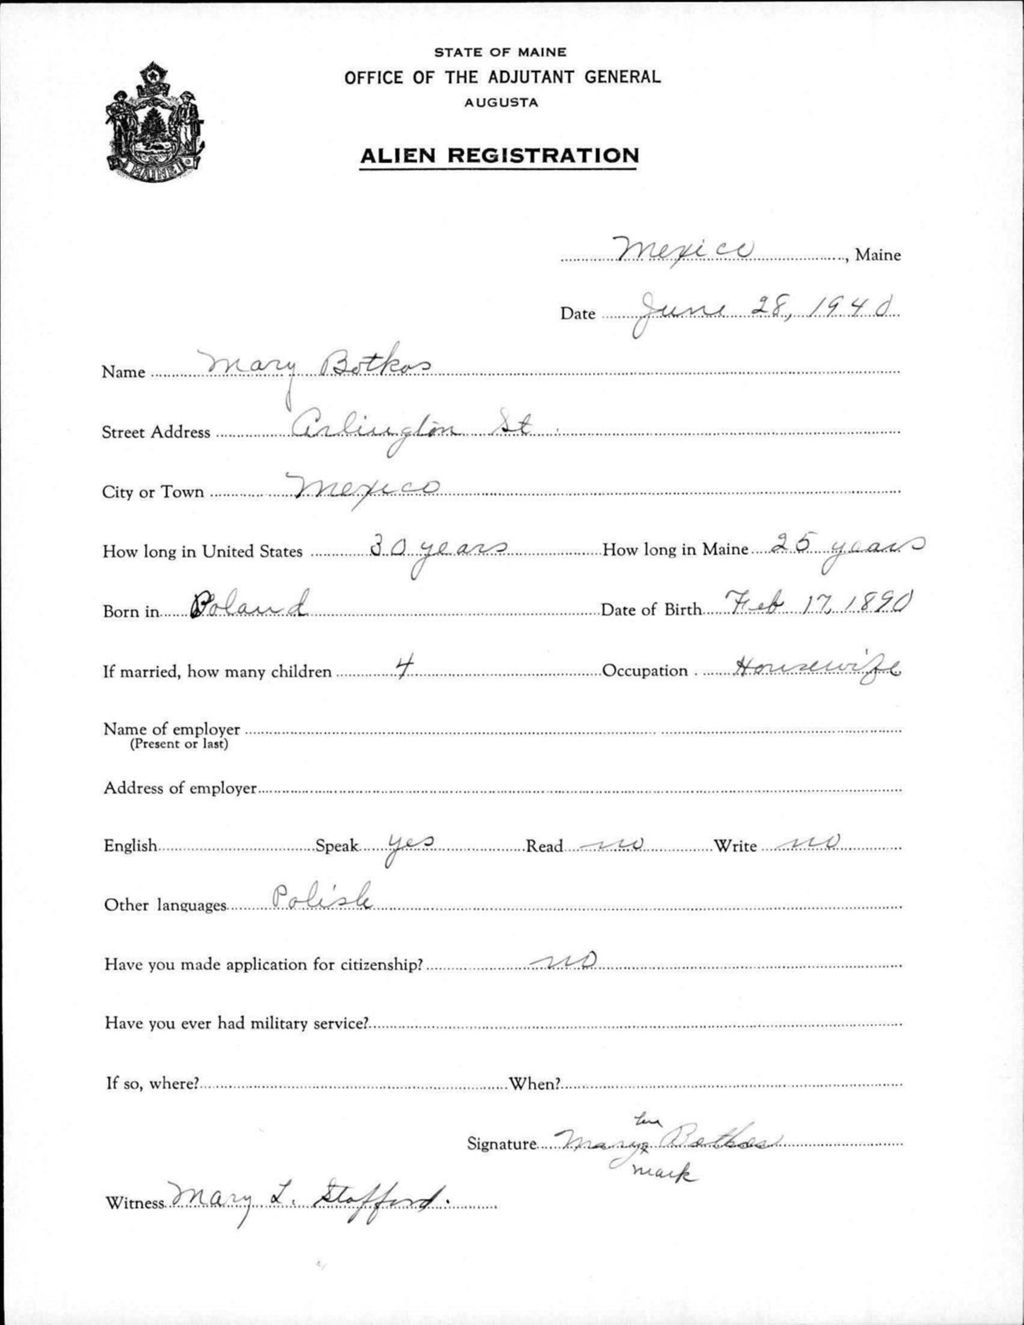 STATE OF MAINE
OFFICE OF THE ADJUTANT GENERAL
AUGUSTA
ALIEN REGISTRATION
MAINE
Mexico, Maine
Date June 28, 1940
Name Mary Botkos
Street Address Arlington St
City or Town Mexico
How long in United States 30 years How long in Maine 25 years
Born in Poland Date of Birth Feb 17, 1890
If married, how many children 4 Occupation Housewife
Name of employer
(Present or last)
Address of employer
English Speak yes Read no Write no
Other languages Polish
Have you made application for citizenship? no
Have you ever had military service?
If so, where? When?
her
Signature Mary x Botkos
mark
Witness Mary L. Stafford.